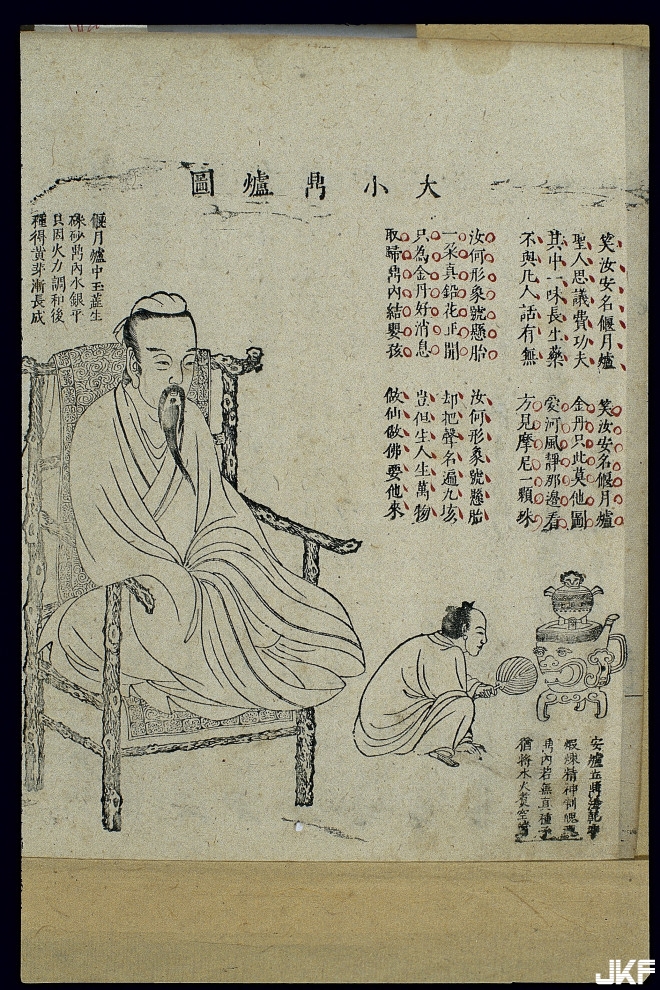 大小鼎爐圖
笑汝安名偃月爐
聖人思議費功夫
其中一味長生藥
不與凡人話有無
笑汝安名偃月爐
金丹只此莫他圖
愛河風靜那邊看
方見摩尼一顆珠
汝何形象號懸胎
一朶真鉛花正開
只為金丹好消息
取歸鼎內結嬰孩
汝何形象號懸胎
却把聲名遍九垓
豈但生人生萬物
做仙做佛要他來
偃月爐中玉蕊生
硃砂鼎內水銀平
只因火力調和後
種得黃芽漸長成
安爐立鼎法乾坤
煅煉精神制魄魂
鼎內若無真種子
猶將水火煑空鐺
JKF